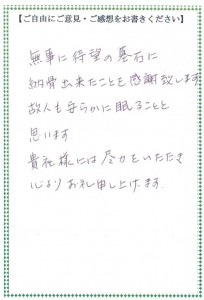 【ご自由にご意見・ご感想をお書きください】
無事に待望の墓石に
納骨出来たことを感謝致します
故人も安らかに眠ることと
思います
貴社様には尽力をいただき
心よりお礼申し上げます.